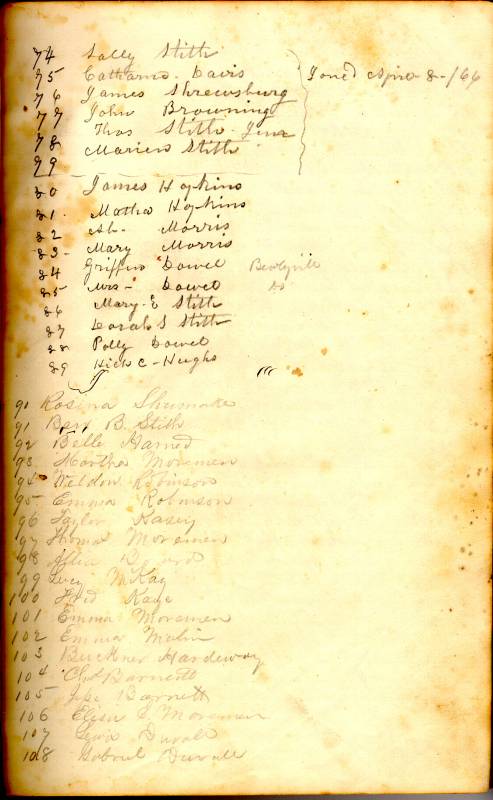 74 Sally Stith
75 Catharine Davis Joined April 8-/66
76 James Shrewsburg
77 John Browning
78 Thos Stith Junr
79 Stith
80 James Hopkins
81 Matha Hopkins
82 Morris
83 Mary Morris
84 Griffin Dowel
85 Mrs - Dowel Do
86 Mary E Stith
87 Sarah S Stith
88 Polly Dowel
89 Hick C - Hughs
90 Rosina Shumake
91 Ben B Stith
92 Belle Hamed
93 Martha Moremen
94 Weldon Robinson
95 Emma Robinson
96 Taylor Kasey
97 Thomas Moremen
98
99 Lucy McKay
100 Fred Kaye
101 Emma Moremen
102 Emma Malin
103 Buckner Hardeway
104 Barnett
105 Barnett
106 Eliza S Moremen
107 Lewis Duvall
108 Gabriel Duvall